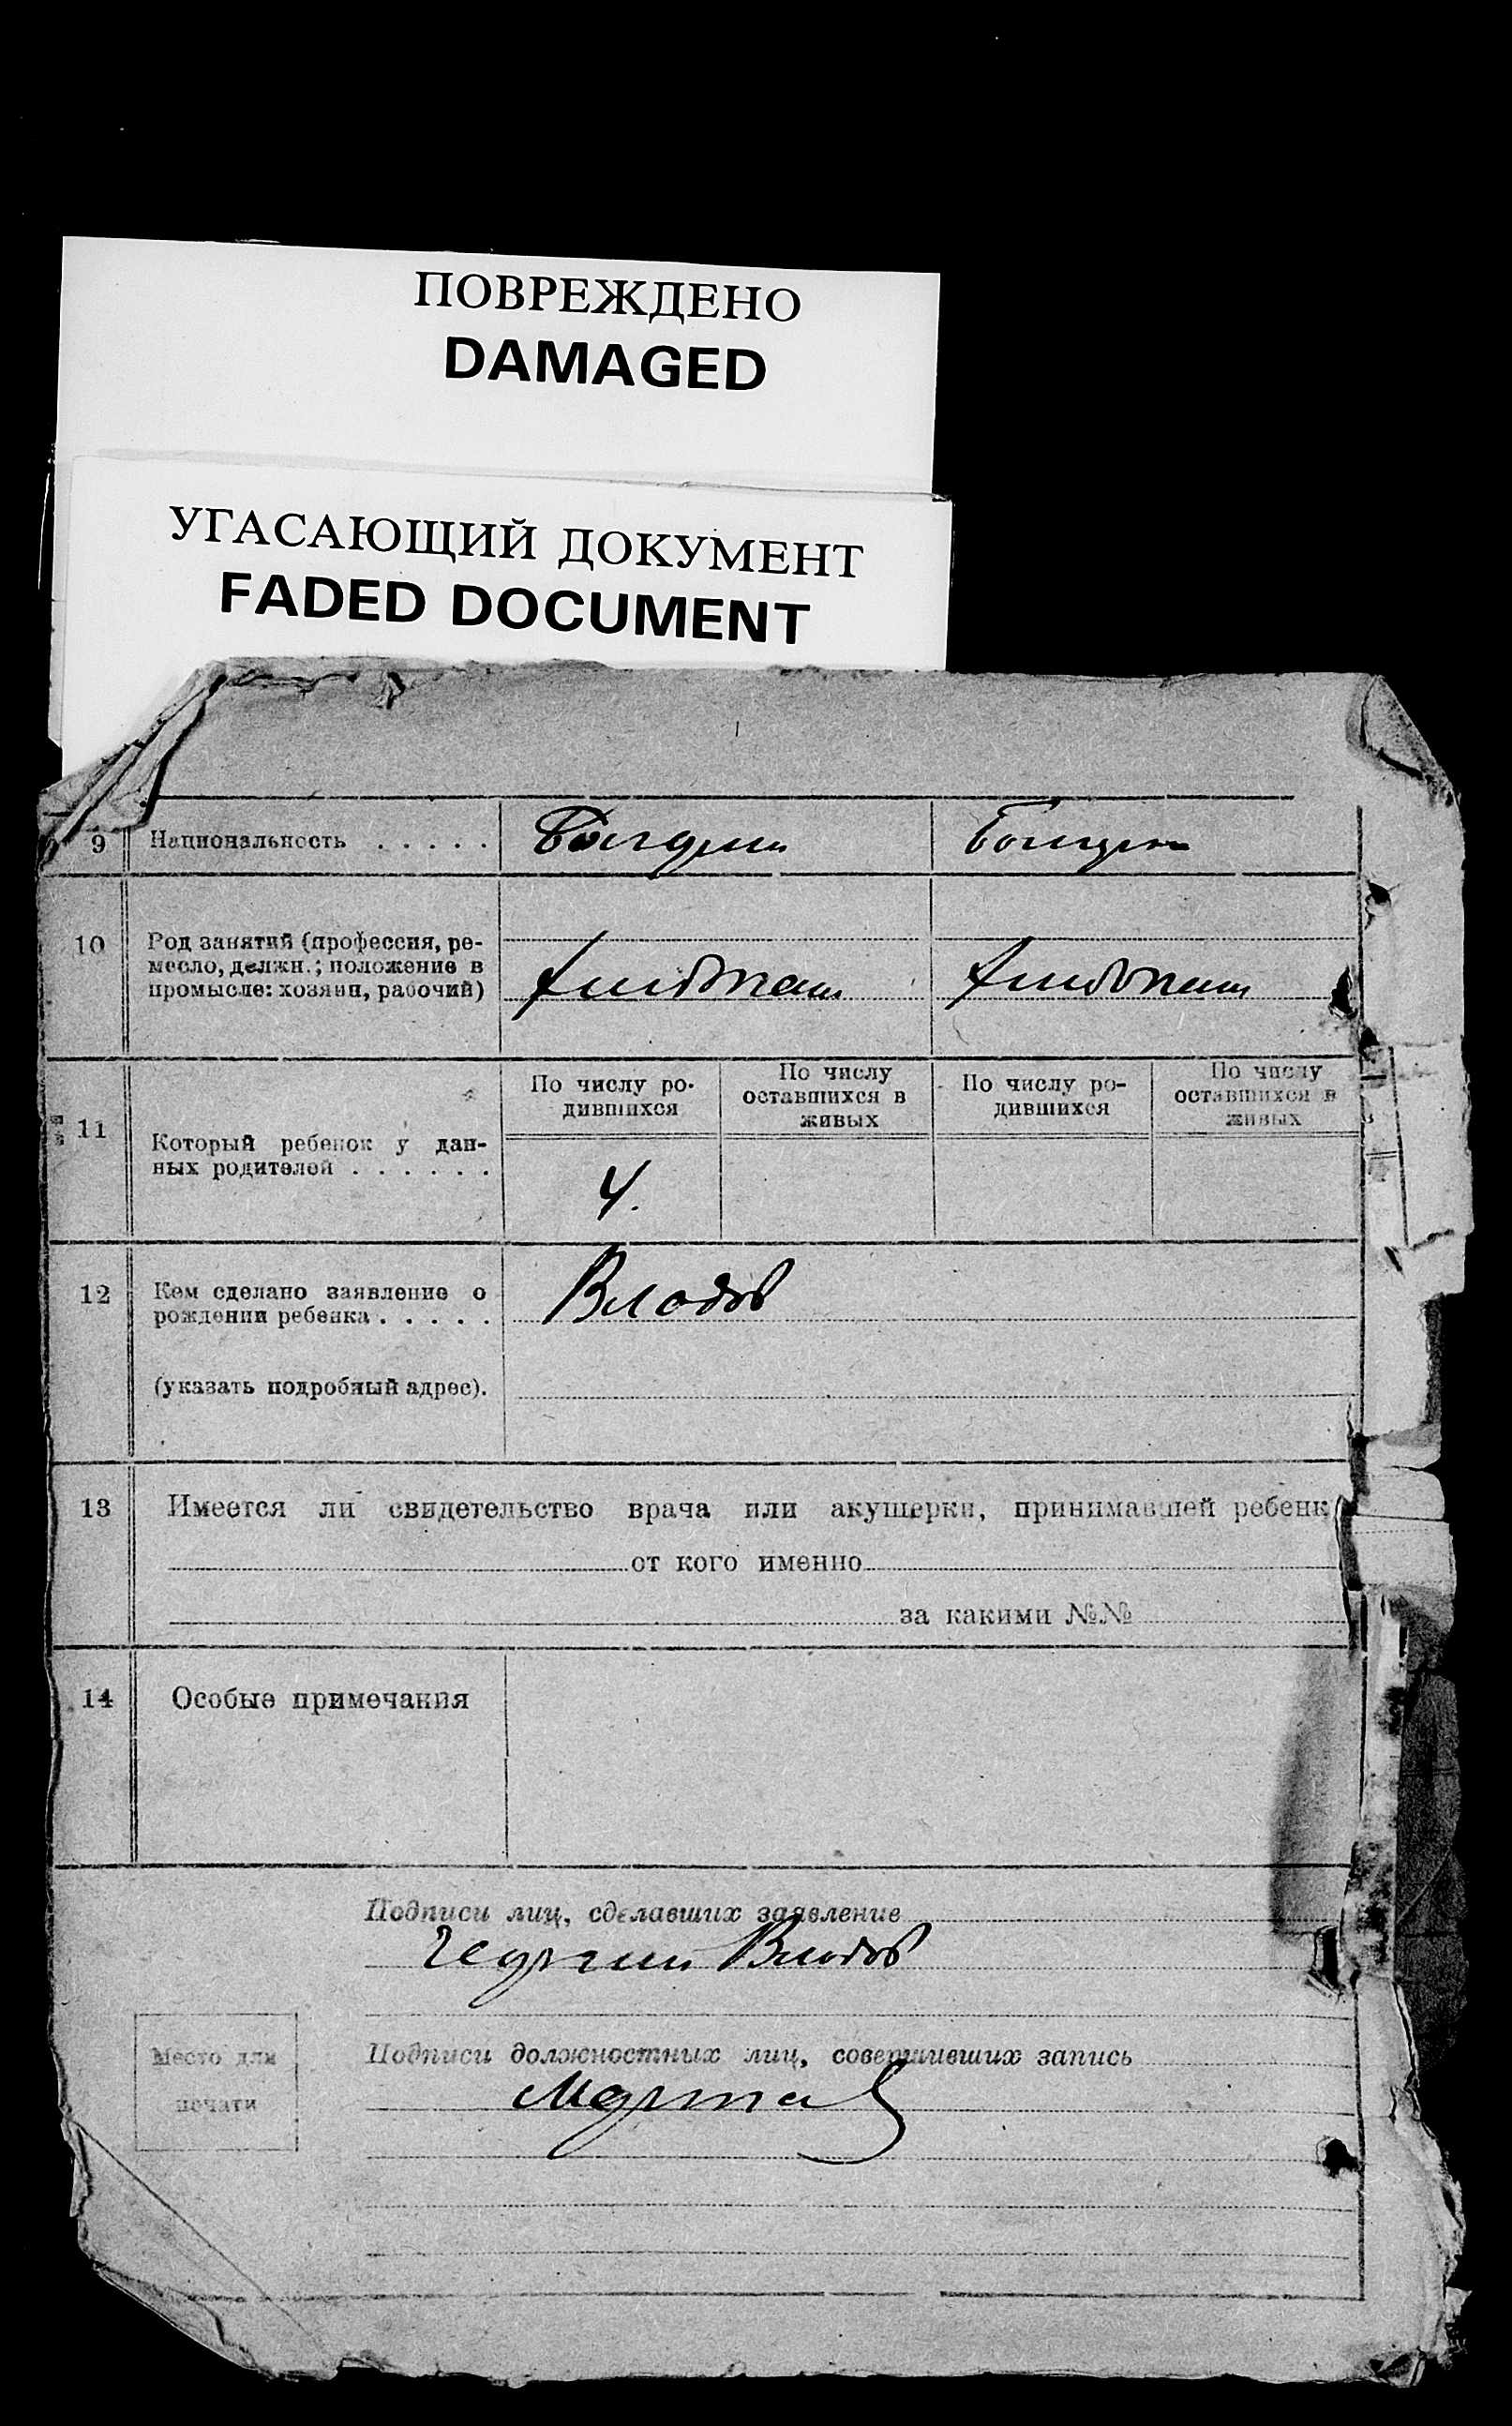 ПОВРЕЖДЕНО
DAMAGED
УГАСАЮЩИЙ ДОКУМЕНТ
FADED DOCUMENT
9 Национальность . . . . .
10 Род занятий (профессия, ре-
месло, должн.; положение в
промысле: хозяин, рабочий)
11 Который ребенок у дан-
ных родителей . . . . . .
По числу ро-
дившихся
По числу
оставшихся в
живых
По числу ро-
дившихся
По числу
оставшихся в
живых
4.
12 Кем сделано заявление о
рождении ребенка . . . . .
(указать подробный адрес).
Влодов
13 Имеется ли свидетельство врача или акушерки, принимавшей ребенк
от кого именно
за какими №№
14 Особые примечания
Подписи лиц, сделавших заявление
Георгий Влодов
Место для
печати
Подписи должностных лиц, совершивших запись